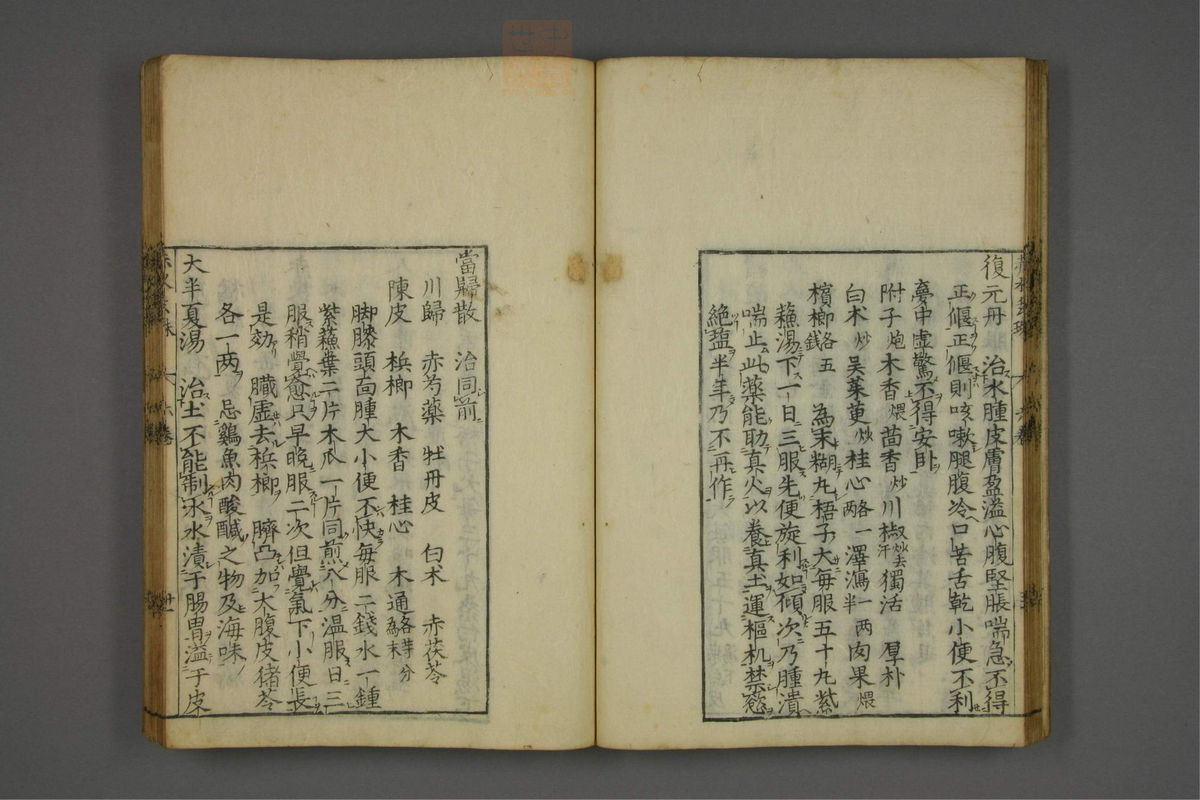 復元丹 治水腫皮膚盈溢心腹堅脹喘急不得
正偃正偃則咳嗽腿腹冷口苦舌乾小便不利
夢中虛驚不得安卧
附子炮木香煨茴香炒川椒炒去汗獨活 厚朴
白朮炒吳茱萸炒桂心各一兩澤瀉一兩半肉果煨
檳榔各五錢 為末糊丸梧子大每服五十丸紫
蘓湯下一日三服先便旋利如傾次乃腫潰
喘止此藥能助真火以養真土運樞机禁慾
絶盐半年乃不再作
當歸散 治同前
川歸 赤芍藥 牡丹皮 白朮 赤茯苓
陳皮 梹榔 木香 桂心 木通各等分為末
脚膝頭面腫大小便不快每服二錢水一鍾
紫蘓葉二片木瓜一片同煎八分温服日三
服稍覺愈只早晚服二次但覺氣下小便長
是効 臓虛去梹榔 臍凸加大腹皮猪苓
各一兩 忌鷄魚肉酸醎之物及海味
大半夏湯 治土不能制水水漬于腸胃溢于皮